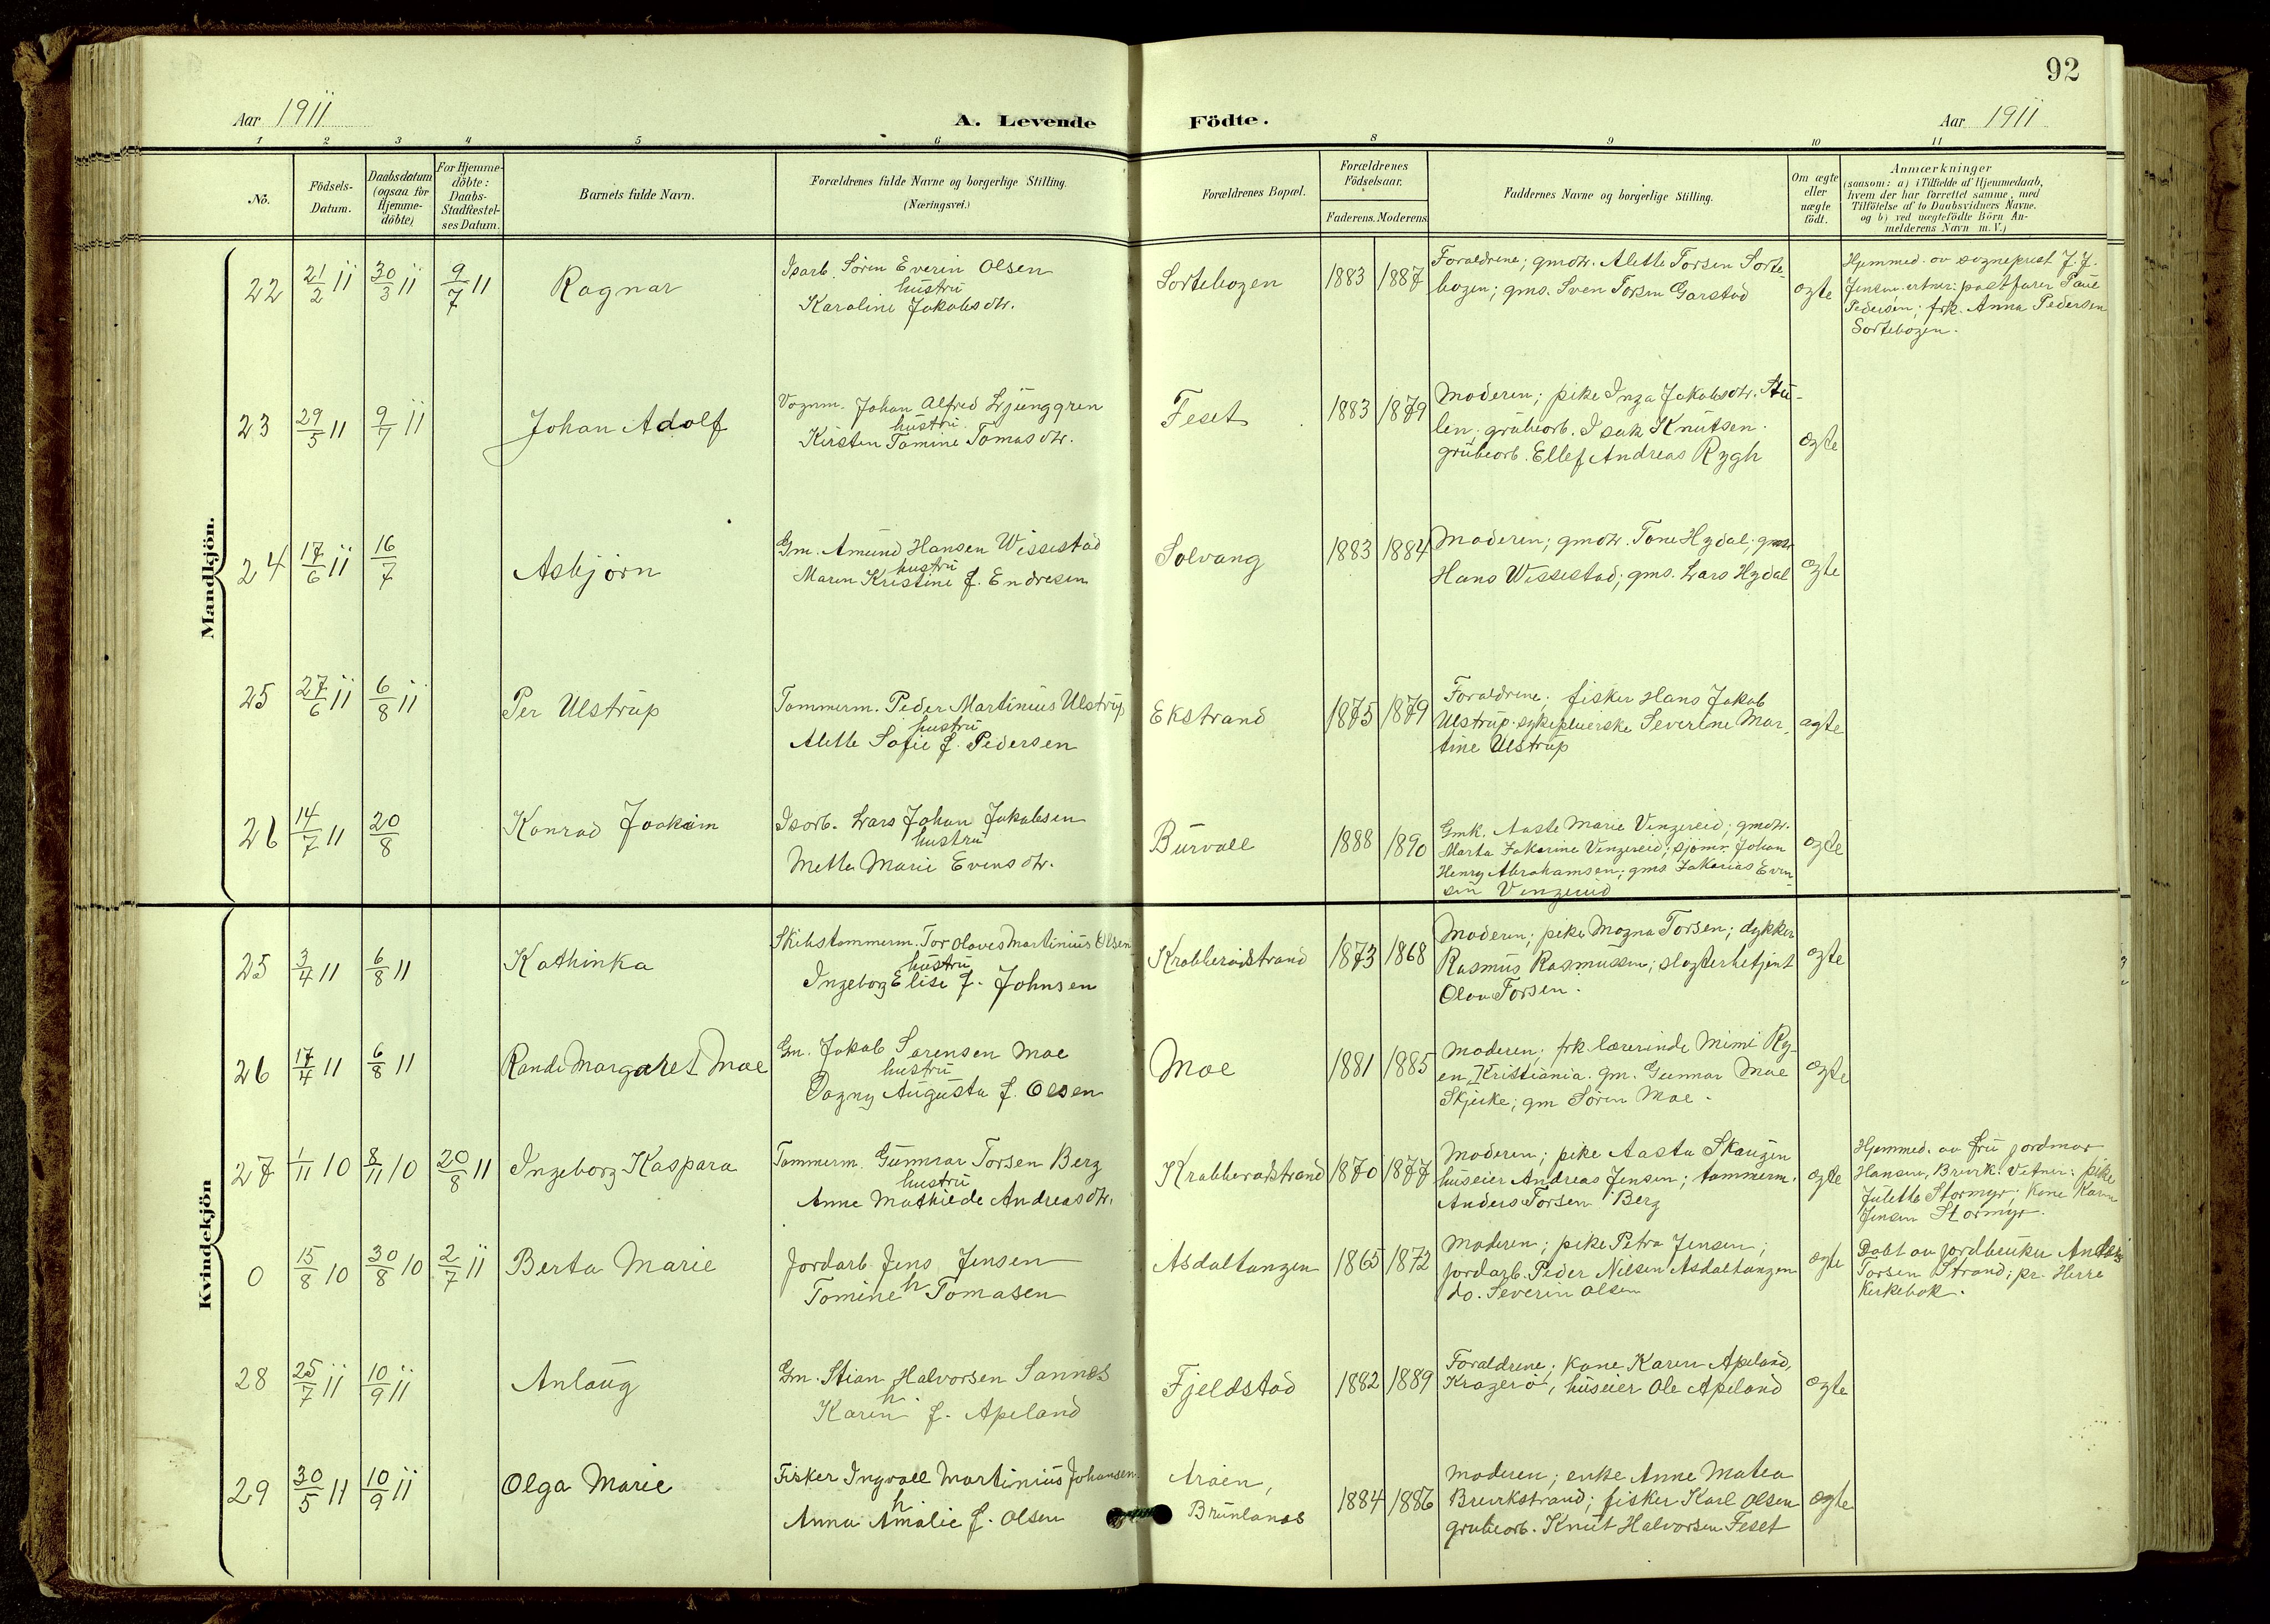 92
Aar 1911
A. Levende Födte.
Aar 1911
1 2 3 4 5 6 8 9 10 11
No.
Födsels-
Datum.
Daabsdatum
(ogsaa for
Hjemme-
döbte)
For Hjemme-
döbte:
Daabs-
Stadfæstel-
ses Datum.
Barnets fulde Navn.
Forældrenes fulde Navne og borgerlige Stilling.
(Næringsvei.)
Forældrenes Bopæl.
Forældrenes
Födselsaar.
Faderens. Moderens.
Faddernes Navne og borgerlige Stilling.
Om ægte
eller
uægte
födt.
Anmærkninger
(saasom: a) i Tilfælde af Hjemmedaab,
hvem der har forrettet samme, med
Tilföielse af to Daabsvidners Navne.
og b) ved uægtefödte Börn An-
melderens Navn m. V.)
Mandkjön.
22 21/2 11 30/3 11 9/7 11 Ragnar
Isarb. Søren Everin Olsen
hustru
Karoline Jakobsdtr.
Sortebogen 1883 1887
Forældrene; gmdtr. Alette Torsen Sorte-
bogen; gms. Sven Torsen Garstad
ægte
Hjemmed. av sogneprest J. J.
Jensen. vitner: postfører Paul
Pedersen; frk. Anna Pedersen
Sortebogen.
23 29/5 11 9/7 11 Johan Adolf
Vognm. Johan Alfred Ljunggren
hustru
Kirsten Tomine Tomasdtr.
Feset 1883 1879
Moderen; pike Inga Jakobsdtr. Stu-
len; grubearb. Isak Knutsen.
grubearb. Ellef Andreas Rygh
ægte
24 17/6 11 16/7 Asbjørn
Gm. Amund Hansen Wissestad
hustru
Maren Kristine f. Endresen
Solvang 1883 1884
Moderen; gmdtr. Tone Hydal; gms.
Hans Wissestad; gms. Lars Hydal
ægte
25 27/6 11 6/8 11 Per Ulstrup
Tømmerm. Peder Martinius Ulstrup
hustru
Alette Sofie f. Pedersen
Ekstrand 1875 1879
Forældrene; fisker Hans Jakob
Ulstrup. sykepleierske Severine Mar-
tine Ulstrup
ægte
26 14/7 11 20/8 Konrad Joakim
Isarb. Lars Johan Jakobsen
hustru
Mette Marie Evensdtr.
Burvall 1888 1890
Gmk. Aaste Marie Vinzereid; gmdtr.
Marta Zakarine Vinzereid; sjøm. Johan
Henry Abrahamsen; gms Zakarias Even-
sen Vinzereid
ægte
Kvindekjön
25 3/4 11 6/8 11 Kathinka
Skibstømmerm. Tor Olaves Martinius Olsen
hustru
Ingeborg Elise f. Johnsen
Krabberødstrand 1873 1868
Moderen; pike Magna Torsen; dykker
Rasmus Rasmussen; slagterbetjent
Olav Torsen.
ægte
26 17/4 11 6/8 11 Randi Margaret Moe
Gm. Jakob Sørensen Moe
hustru
Dagny Augusta f. Olsen
Moe 1881 1885
Moderen; frk lærerinde Mimi Ry-
en, Kristiania. gm. Gunnar Moe
Skjeke; gm Søren Moe.
ægte
27 1/11 10 8/11 10 20/8 11 Ingeborg Kaspara
Tømmerm. Gunnar Torsen Berg
hustru
Anne Mathilde Andreasdtr.
Krabberødstrand 1870 1877
Moderen; pike Aasta Skaugen
huseier Andreas Jensen; tømmerm.
Anders Torsen Berg
ægte
Hjemmed. av fru jordmor
Hansen, Brevik. Vitner: pike
Julette Stormyr; kone Karen
Jensen Stormyr.
0 15/8 10 30/8 10 2/7 11 Berta Marie
Jordarb. Jens Jensen
h
Tomine Tomasen
Asdaltangen 1865 1872
Moderen; pike Petra Jensen;
jordarb. Peder Nilsen Asdaltangen
do. Severin Olsen
ægte
Døbt av jordbruker Anders
Torsen Strand; pr. Herre
Kirkebok.
28 25/7 11 10/9 11 Anlaug
Gm. Stian Halvorsen Sannes
h
Karen f. Apeland
Fjeldstad 1882 1889
Forældrene; kone Karen Apeland,
Kragerø; huseier Ole Apeland
ægte
29 30/5 11 10/9 11 Olga Marie
Fisker Ingvall Martinius Johansen
h
Anna Amalie f. Olsen
Araen,
Brunlanes
1884 1886
Moderen; enke Anne Matea
Brevikstrand; fisker Karl Olsen
grubearb. Knut Halvorsen Feset
ægte